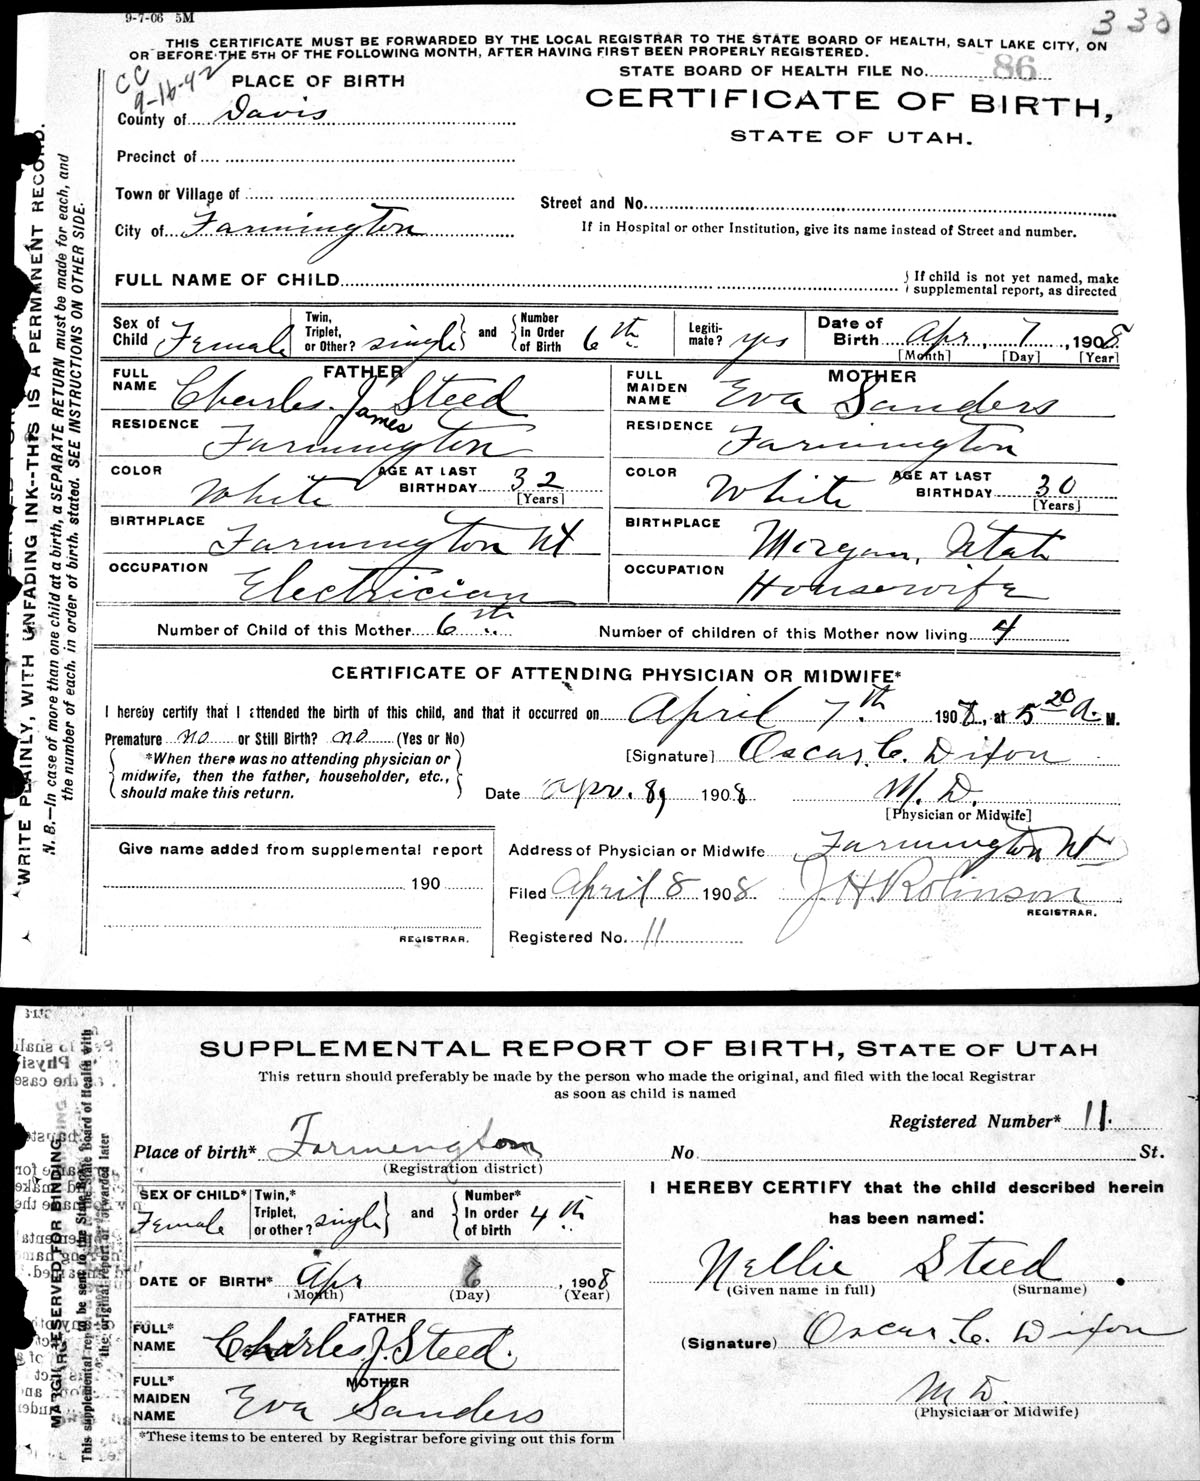 9-7-06 5M
330
THIS CERTIFICATE MUST BE FORWARDED BY THE LOCAL REGISTRAR TO THE STATE BOARD OF HEALTH, SALT LAKE CITY, ON
OR BEFORE THE 5TH OF THE FOLLOWING MONTH, AFTER HAVING FIRST BEEN PROPERLY REGISTERED.
CC
9-16-42
STATE BOARD OF HEALTH FILE No. 86
PLACE OF BIRTH
CERTIFICATE OF BIRTH,
STATE OF UTAH.
County of Davis
Precinct of
Town or Village of
Street and No.
City of Farmington
If in Hospital or other Institution, give its name instead of Street and number.
FULL NAME OF CHILD
If child is not yet named, make
supplemental report, as directed
Sex of Child Female
Twin, Triplet, or Other? single and Number in Order of Birth 6th
Legiti-mate? yes
Date of Birth Apr, 7, 1908
[Month] [Day] [Year]
FATHER
FULL NAME Charles J. Steed
James
RESIDENCE Farmington
COLOR White AGE AT LAST BIRTHDAY 32 [Years]
BIRTHPLACE Farmington Ut
OCCUPATION Electrician
MOTHER
FULL MAIDEN NAME Eva Sanders
RESIDENCE Farmington
COLOR White AGE AT LAST BIRTHDAY 30 [Years]
BIRTHPLACE Morgan, Utah
OCCUPATION Housewife
Number of Child of this Mother 6th Number of children of this Mother now living 4
CERTIFICATE OF ATTENDING PHYSICIAN OR MIDWIFE*
I hereby certify that I attended the birth of this child, and that it occurred on April 7th 1908, at 5 20 A. M.
Premature no or Still Birth? no (Yes or No)
[Signature] Oscar C. Dixon
*When there was no attending physician or
midwife, then the father, householder, etc.,
should make this return.
Date Apr. 8, 1908 M. D.
[Physician or Midwife]
Give name added from supplemental report
190
REGISTRAR.
Address of Physician or Midwife Farmington Ut
Filed April 8 1908 J. H. Robinson
REGISTRAR.
Registered No. 11
WRITE PLAINLY, WITH UNFADING INK--THIS IS A PERMANENT RECORD.
N. B.—In case of more than one child at a birth, a SEPARATE RETURN must be made for each, and
the number of each, in order of birth, stated. SEE INSTRUCTIONS ON OTHER SIDE.
SUPPLEMENTAL REPORT OF BIRTH, STATE OF UTAH
This return should preferably be made by the person who made the original, and filed with the local Registrar
as soon as child is named
Registered Number* 11.
Place of birth* Farmington No. St.
(Registration district)
SEX OF CHILD* Female
Twin,* Triplet, or other? single and Number* In order of birth 4th
DATE OF BIRTH* Apr 1908
(Month) (Day) (Year)
FATHER
FULL* NAME Charles J. Steed.
MOTHER
FULL* MAIDEN NAME Eva Sanders
*These items to be entered by Registrar before giving out this form
I HEREBY CERTIFY that the child described herein
has been named:
Nellie Steed.
(Given name in full) (Surname)
(Signature) Oscar C. Dixon
M D.
(Physician or Midwife)
MARGIN RESERVED FOR BINDING
This supplemental report to be sent to the State Board of Health with
the original report or forwarded later